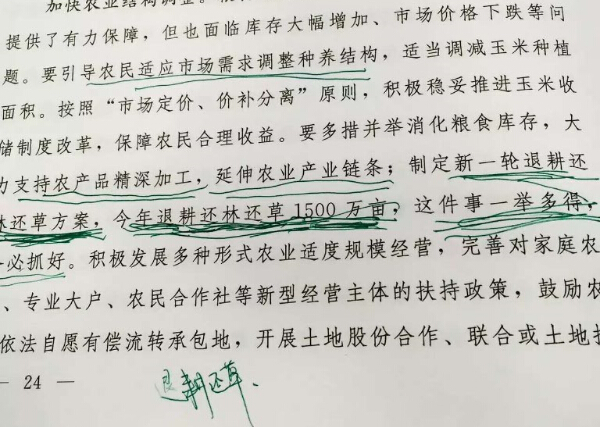 加快农业结构调整。
提供了有力保障，但也面临库存大幅增加、市场价格下跌等问
题。要引导农民适应市场需求调整种养结构，适当调减玉米种植
面积。按照“市场定价、价补分离”原则，积极稳妥推进玉米收
储制度改革，保障农民合理收益。要多措并举消化粮食库存，大
力支持农产品精深加工，延伸农业产业链条；制定新一轮退耕还
林还草方案，今年退耕还林还草1500万亩，这件事一举多得，
必抓好。积极发展多种形式农业适度规模经营，完善对家庭农
、专业大户、农民合作社等新型经营主体的扶持政策，鼓励农
依法自愿有偿流转承包地，开展土地股份合作、联合或土地
— 24 —
退耕还草.